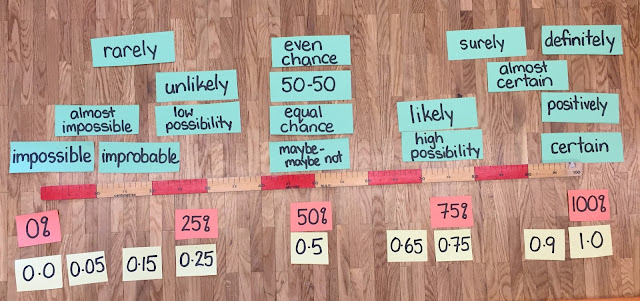 rarely
even
chance
surely
definitely
unlikely
50-50
almost
certain
almost
impossible
low
possibility
equal
chance
likely
positively
impossible
improbable
maybe-
maybe not
high
possibility
certain
0%
25%
50%
75%
100%
0.0
0.05
0.15
0.25
0.5
0.65
0.75
0.9
1.0